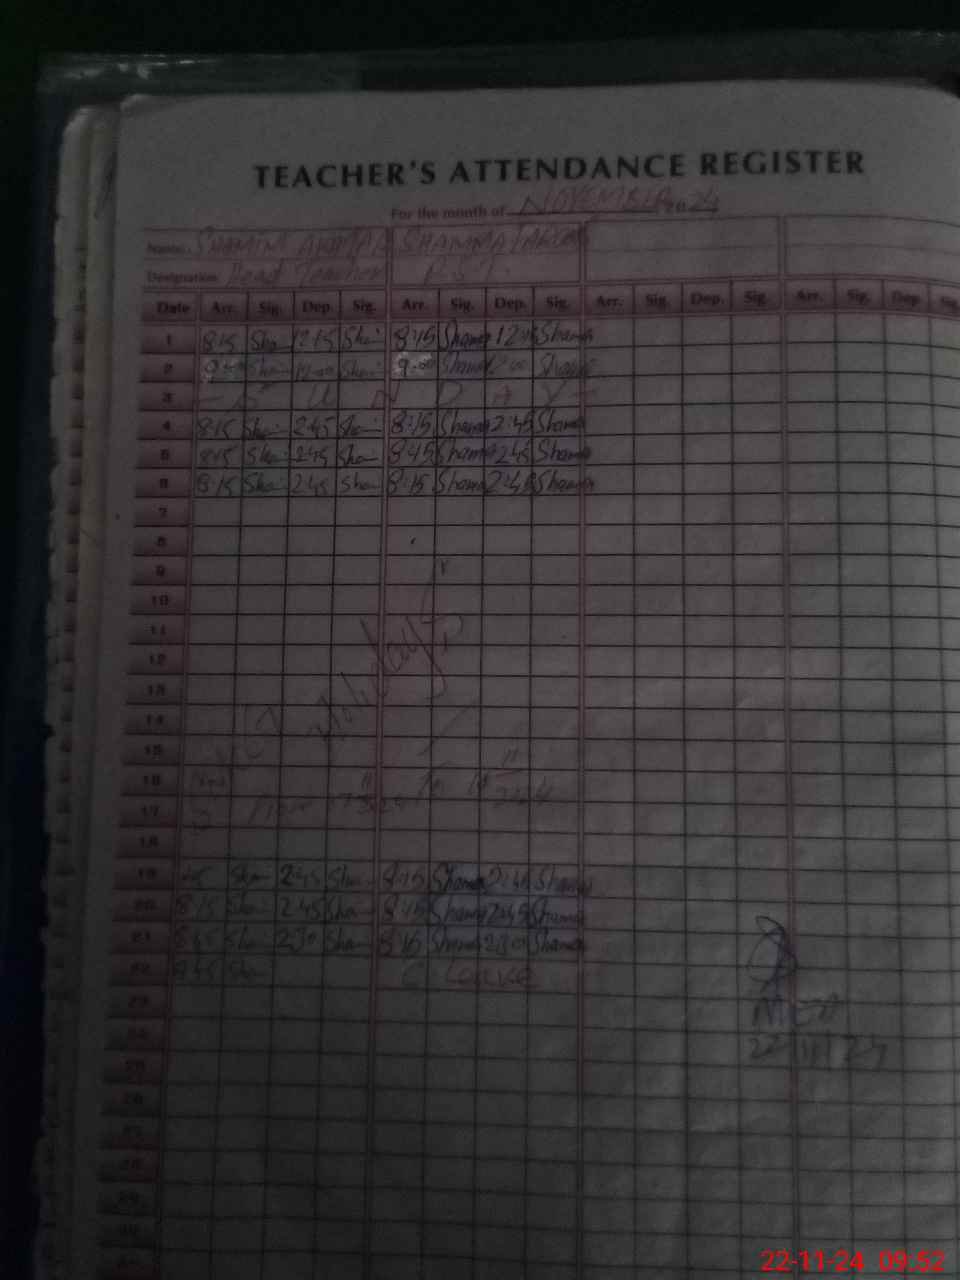 TEACHER'S ATTENDANCE REGISTER
For the month of NOVEMBER 2024
Name: SHAMIM AKHTAR SHAMMA
Designation Head Teacher P.S.T.
Date Arr. Sig. Dep. Sig. Arr. Sig. Dep. Sig. Arr. Sig. Dep. Sig. Arr. Sig. Dep. Sig.
1 8:15 Sha 12:15 Sha 8:15 Shama 12:15 Shama
2 9:00 Sha 12:00 Sha 9:00 Shama 12:00 Shama
3 - S U N D A Y -
4 8:15 Sha 2:45 Sha 8:15 Shama 2:45 Shama
5 8:15 Sha 2:45 Sha 8:15 Shama 2:45 Shama
6 8:15 Sha 2:45 Sha 8:15 Shama 2:45 Shama
7
8
9
10
11
12
13
14 Holidays
15
16
17 From To 2024
18
19 Sha 2:45 Sha 8:15 Shama 2:45 Shama
20 8:15 Sha 2:45 Sha 8:15 Shama 2:45 Shama
21 8:15 Sha 2:30 Sha 8:15 Shama 2:30 Shama
22 Sha C Leave
23
24 22/11/24
25
26
27
28
29
30
22-11-24 09:52